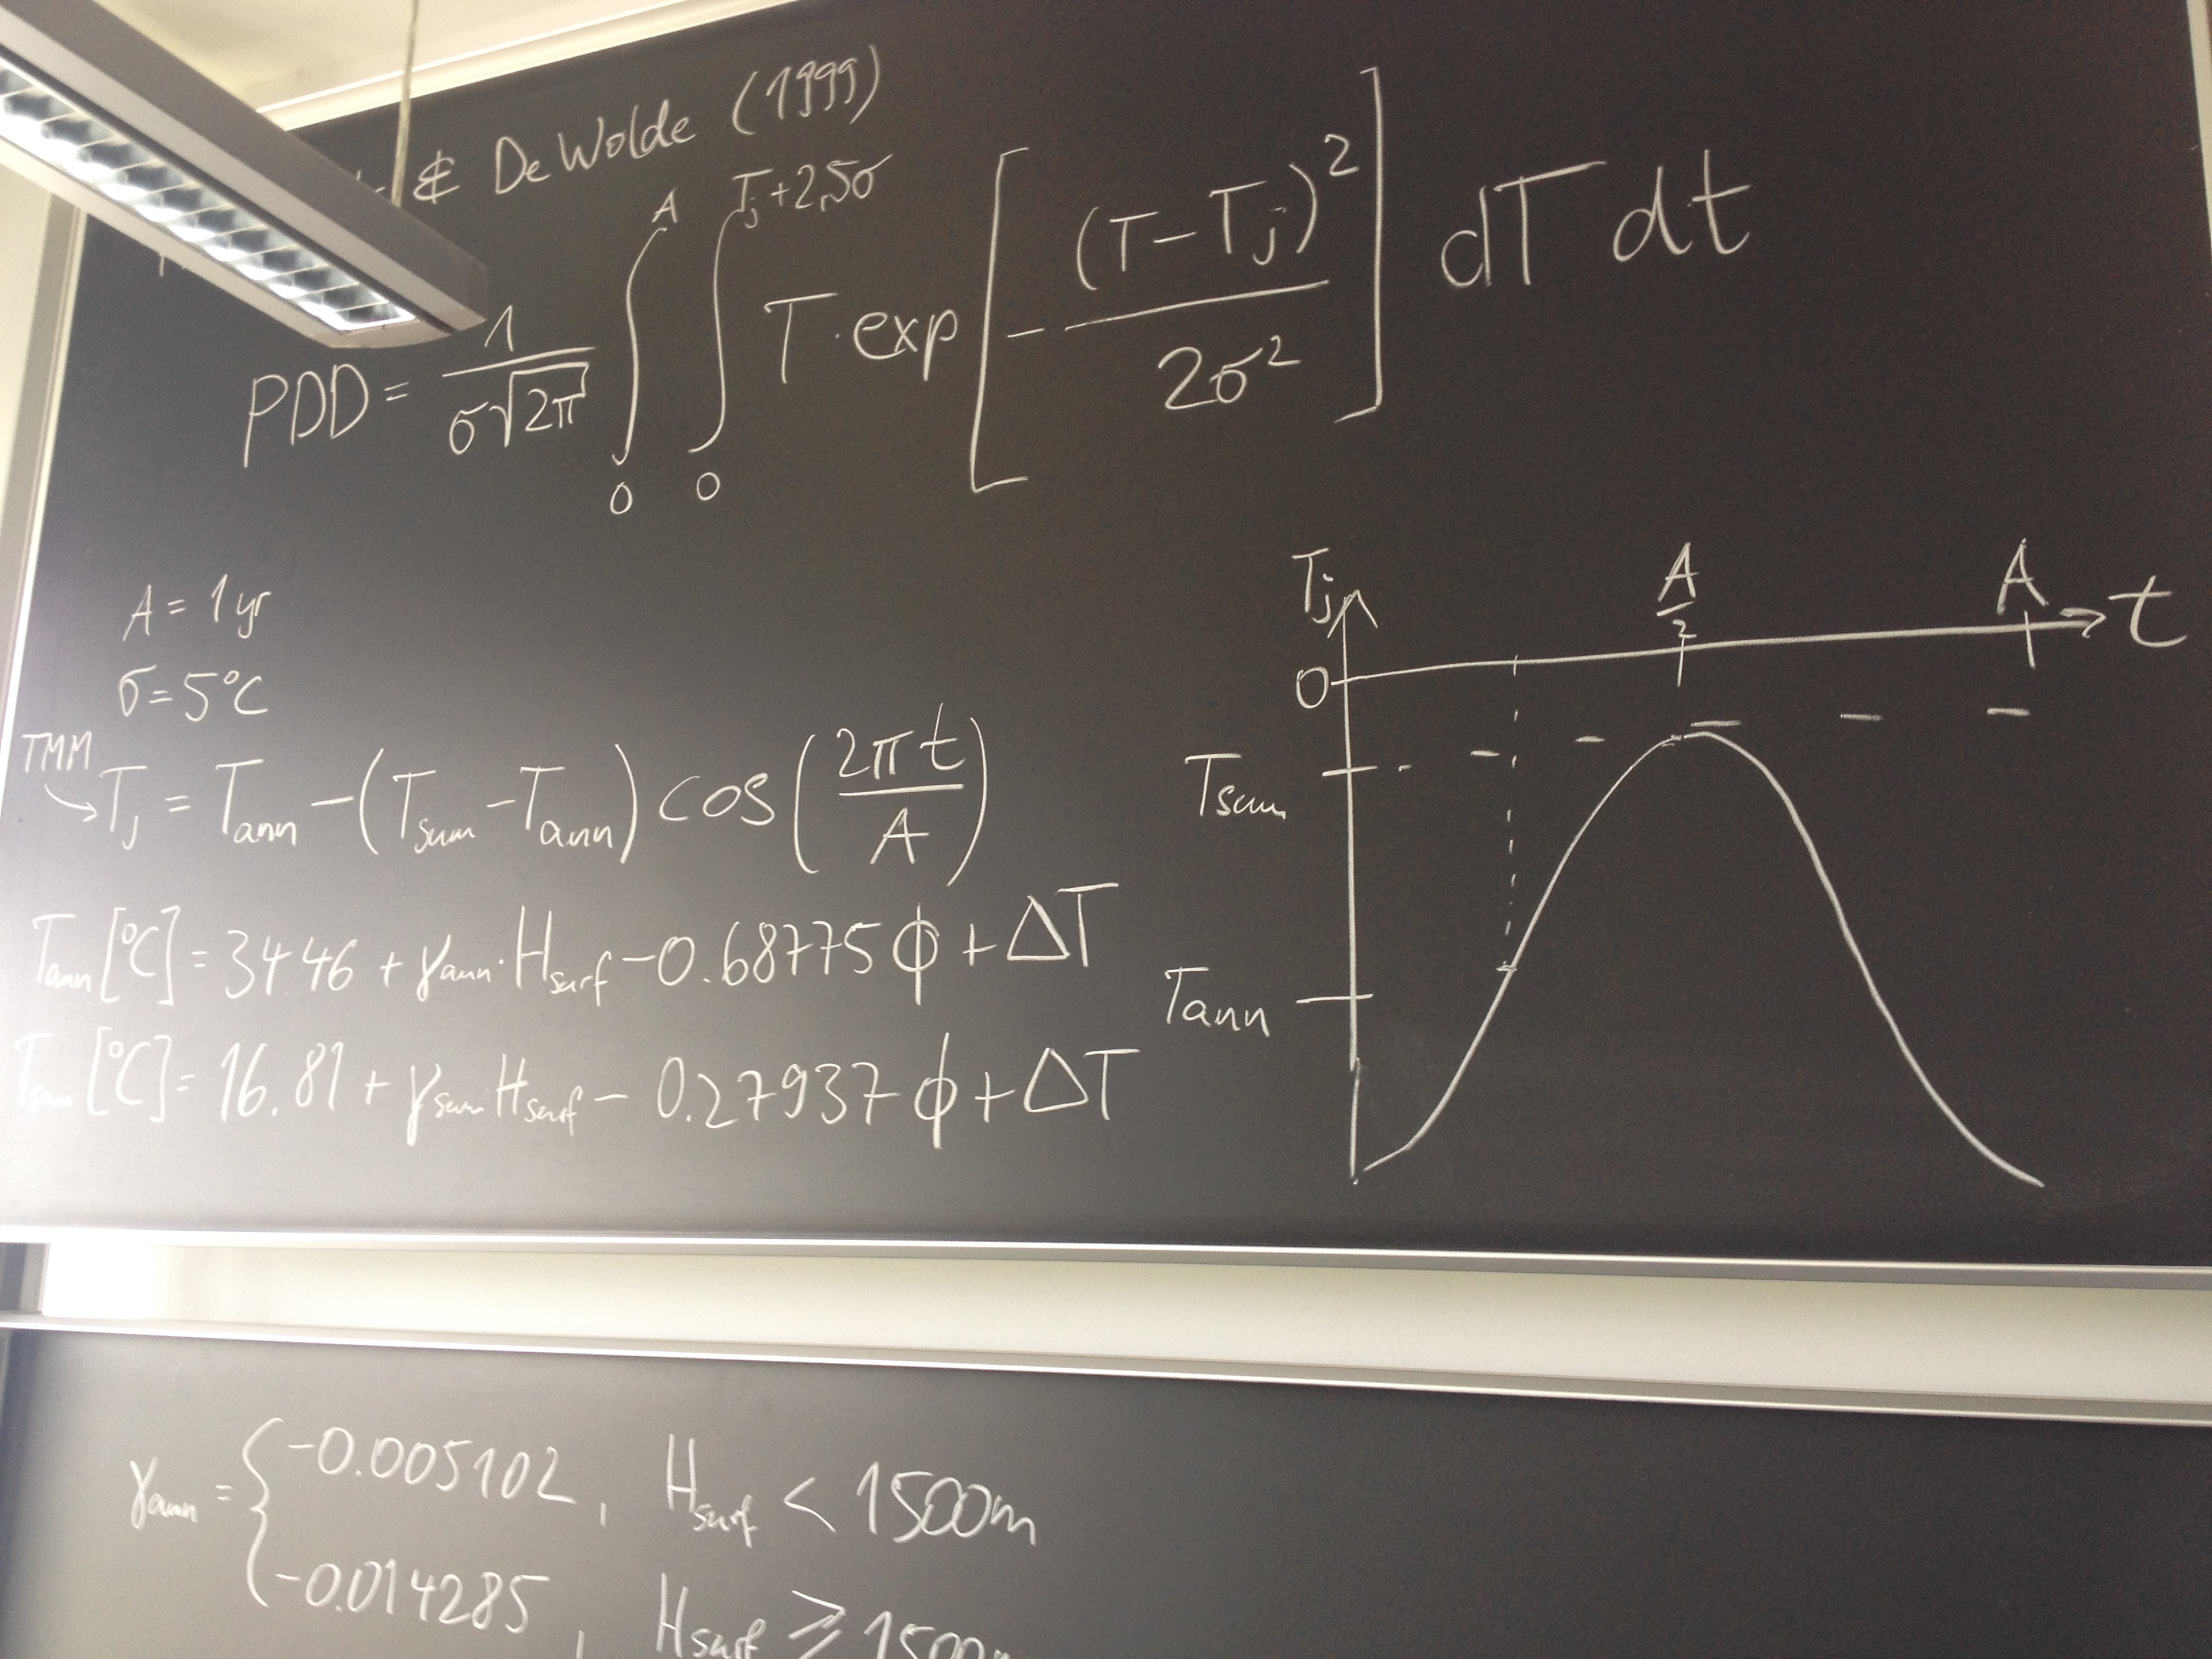 & De Wolde (1999)
PDD = 1/(σ√2π) ∫₀^A ∫₀^(Tj+2,5σ) T · exp[ -(T-Tj)²/(2σ²) ] dT dt
A = 1 yr
σ = 5°C
TMM
Tj = Tann - (Tsum - Tann) cos(2πt/A)
Tann [°C] = 34.46 + γann · Hsurf - 0.68775 ϕ + ΔT
Tsum [°C] = 16.81 + γsum Hsurf - 0.27937 ϕ + ΔT
Tj
A/2
A
t
0
Tsum
Tann
γann = { -0.005102, Hsurf < 1500m
-0.014285, Hsurf ≥ 1500m